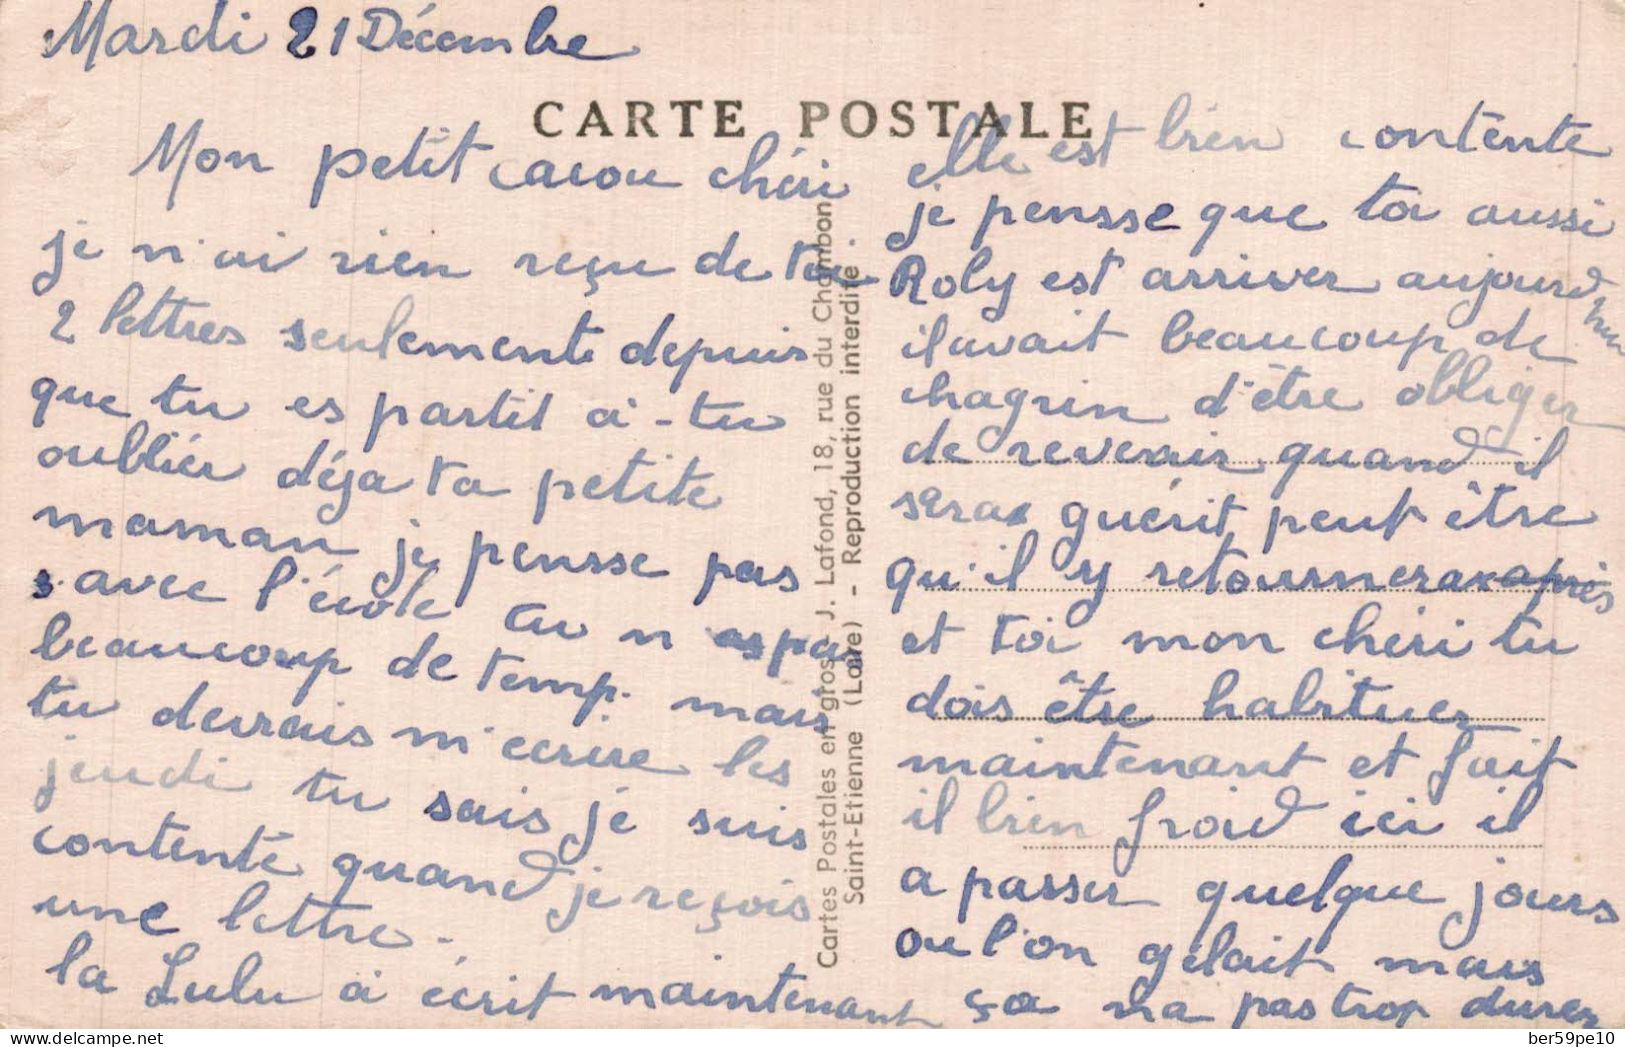 Mardi 21 Décembre
CARTE POSTALE
Mon petit cacou chéri
je n'ai rien reçue de toi
2 lettres seulemente depuis
que tu es partit a-tu
oublier déja ta petite
maman je pensse pas
avec l'école tu n as pas
beaucoup de temp. mais
tu devrais m'ecrire les
jeudi tu sais je suis
contente quand je reçois
une lettre.
la Lulu a écrit maintenant
elle est bien contente
je pensse que toi aussi
Roly est arriver aujourd'hui
il avait beaucoup de
chagrin d'être obliger
de revenir quand il
sera guérit peut être
qu'il y retournera après
et toi mon cheri tu
dois être habituer
maintenant et fait
il bien froid ici il
a passer quelque jours
ou l'on gelait mais
ça na pas trop durer
Cartes Postales en gros J. Lafond, 18, rue du Chambon
Saint-Etienne (Loire) - Reproduction interdite
delcampe.net
ber59pe10